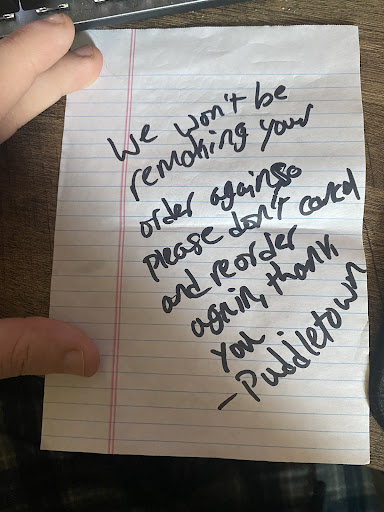 We won't be
remaking your
order again so
please don't cancel
and reorder
again, thank
you.
- Puddletown